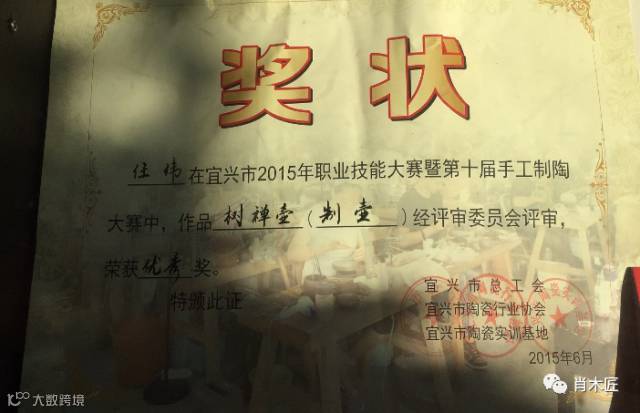 奖状
任炜在宜兴市2015年职业技能大赛暨第十届手工制陶
大赛中，作品树禅壶（制壶）经评审委员会评审，
荣获优秀奖。
特颁此证
宜兴市总工会
宜兴市陶瓷行业协会
宜兴市陶瓷实训基地
2015年6月
大数跨境
肖木匠